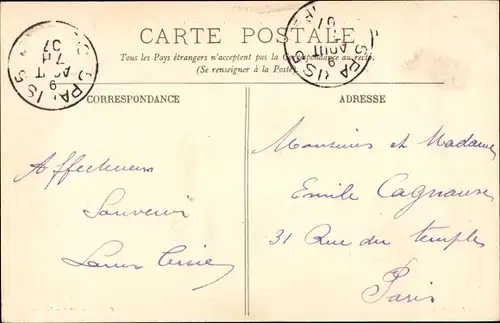 CARTE POSTALE
Tous les Pays étrangers n'acceptent pas la Correspondance au recto.
(Se renseigner à la Poste)
CORRESPONDANCE
ADRESSE
Affectueux
Souvenir
Monsieur et Madame
Emile
31 Rue du temple
Paris
PARIS
7 H
9
AOUT
07
PARIS
9
AOUT
07